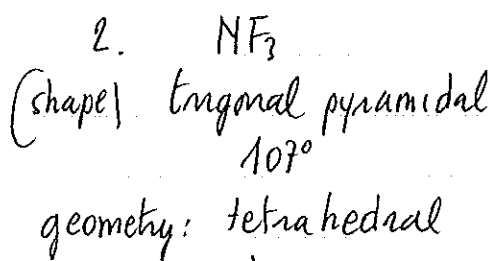 2. NF₃
(shape) trigonal pyramidal
107°
geometry: tetrahedral